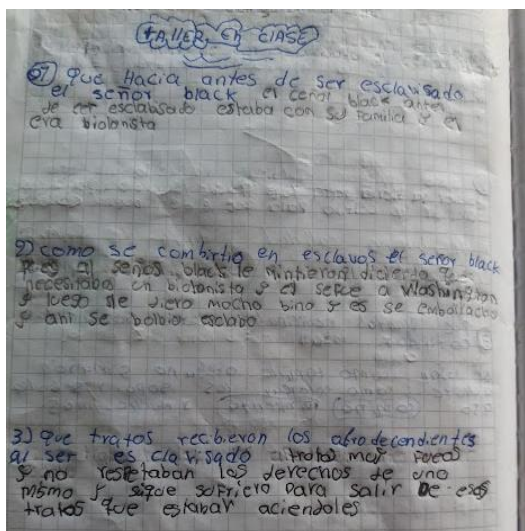 TALLER EN CLASE
1) que Hacia antes de ser esclavisado
el señor black el ceñor black antes
de cer esclabisado estaba con su familia y el
era biolonista
2) como se combirtio en esclavos el señor black
pues al señor black le mintieron diciendo que
necesitaban un biolonista y el se fue a Washington
y luego le diero mocho bino y es se emborracho
y ahi se bolbio esclabo
3) que tratos recibieron los afrodecendientes
al ser esclavisado tratos muy
y no resetaban los derechos de uno
mismo y sigue sufriero para salir De esos
tratos que estaban aciendoles